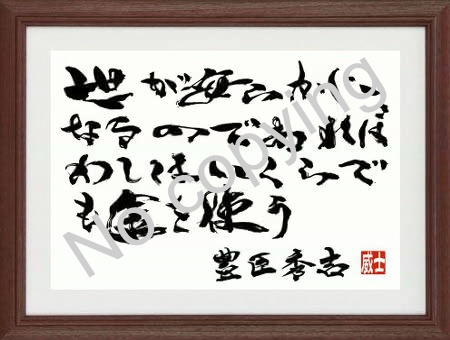 世が安らかに
なるのであれば
わしはいくらで
も金を使う
豊臣秀吉 威士
No copying